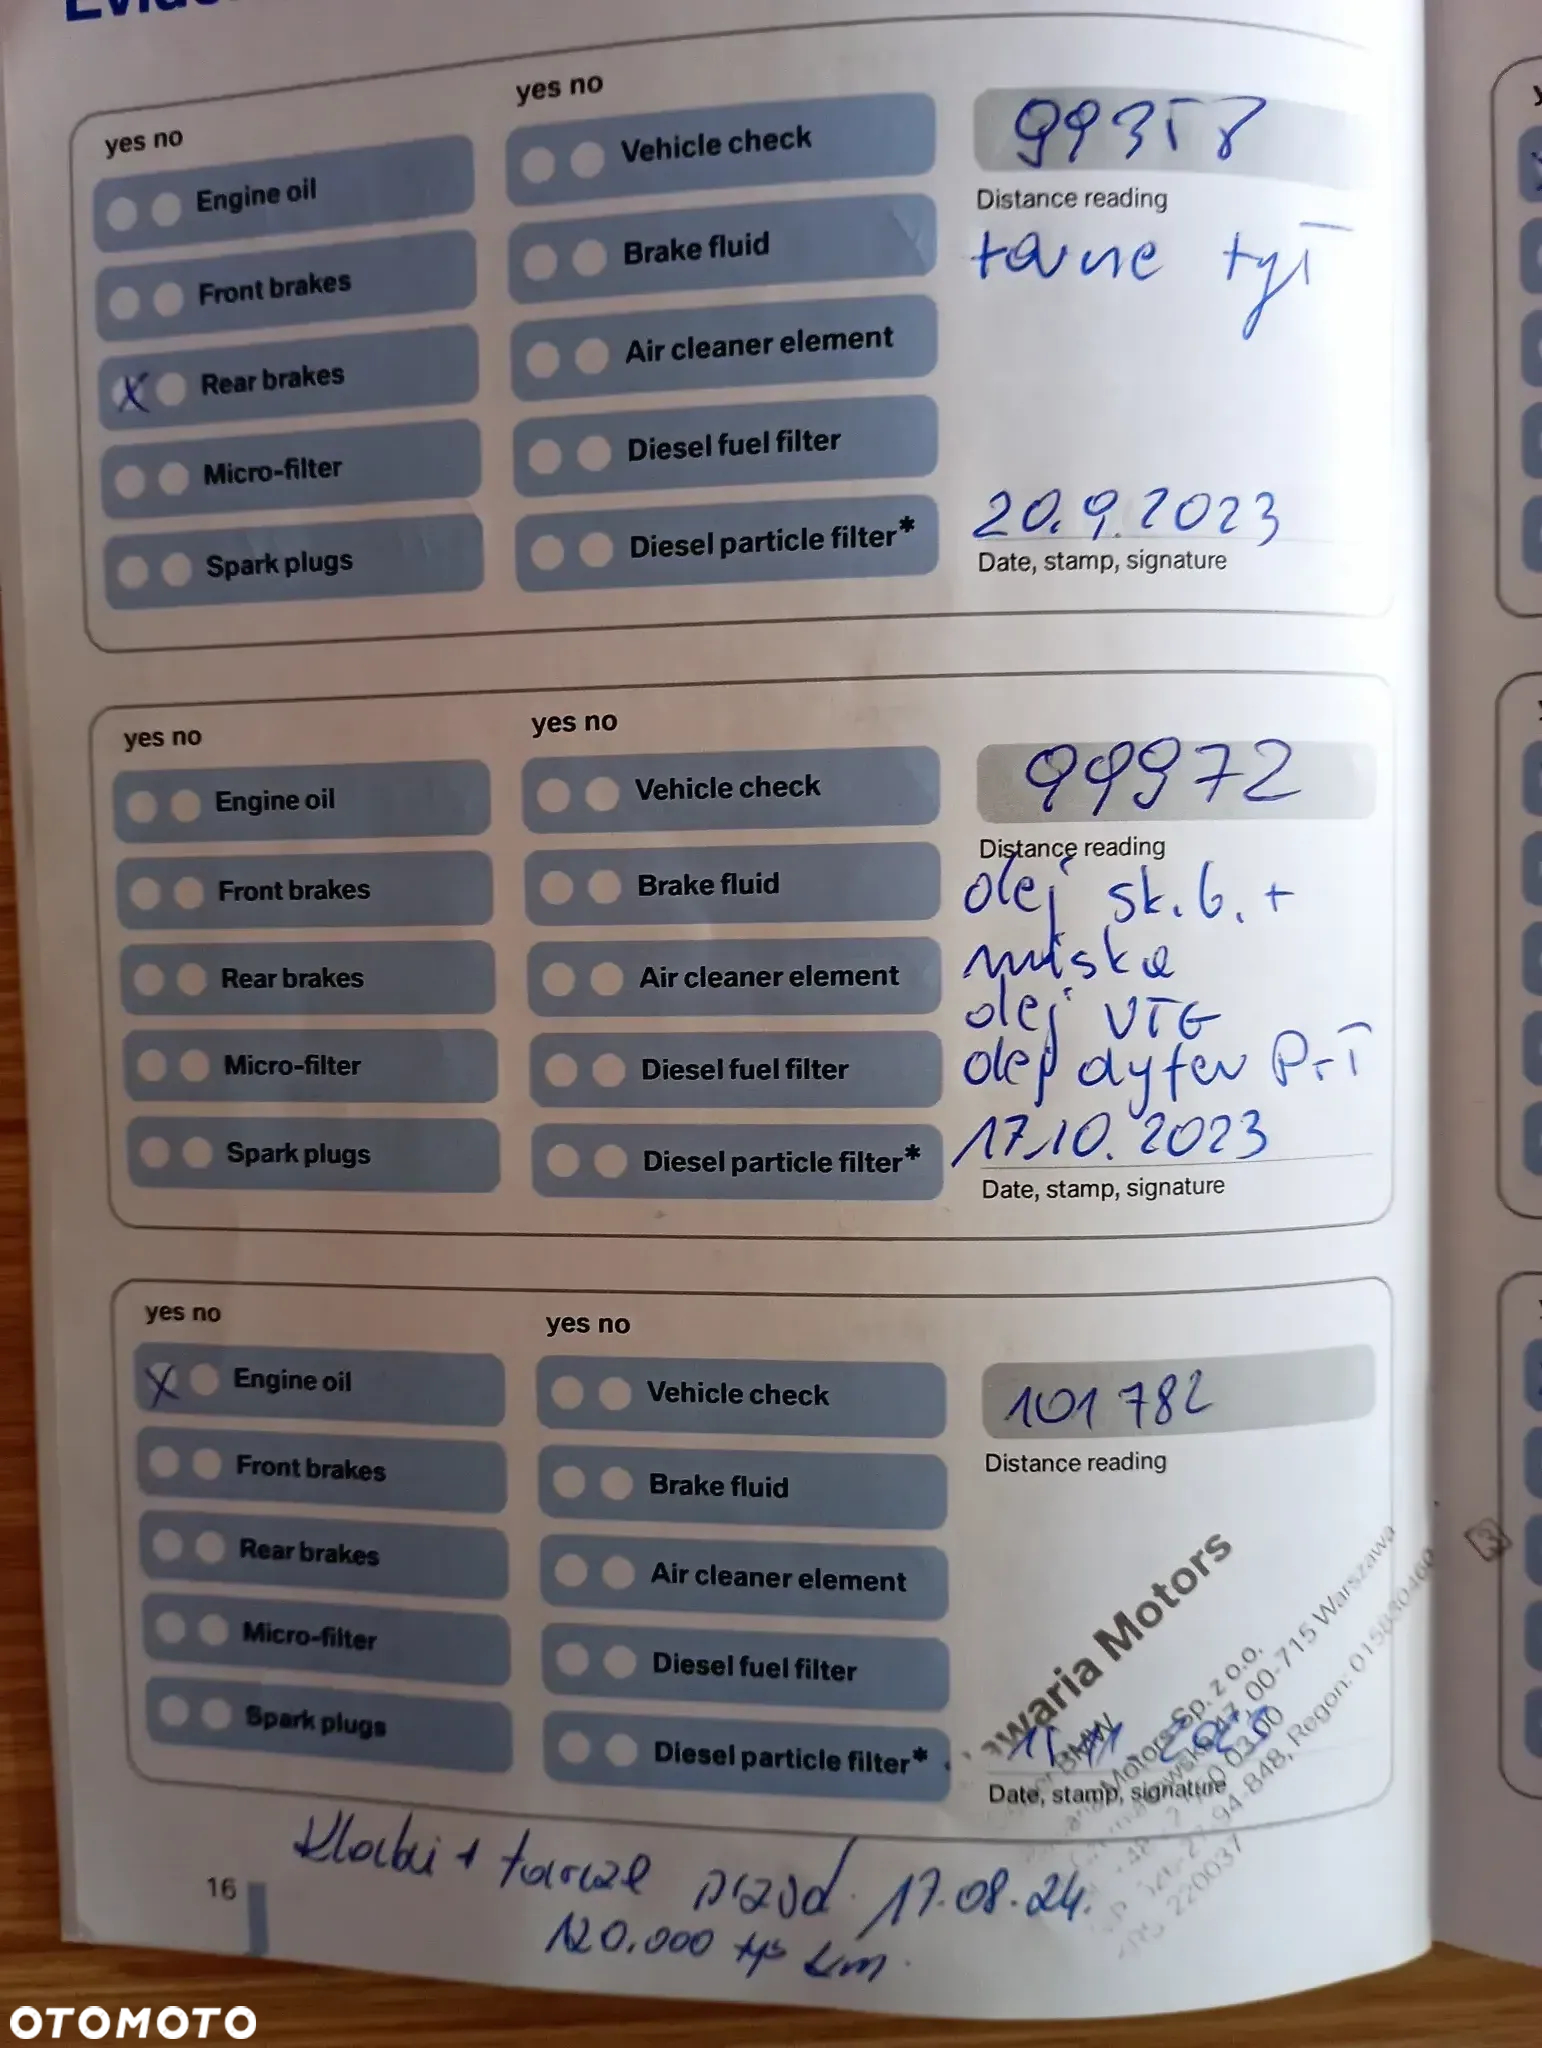 yes no
Engine oil
Front brakes
X Rear brakes
Micro-filter
Spark plugs
yes no
Vehicle check
Brake fluid
Air cleaner element
Diesel fuel filter
Diesel particle filter*
99358
Distance reading
tarcze tył
20.9.2023
Date, stamp, signature
yes no
Engine oil
Front brakes
Rear brakes
Micro-filter
Spark plugs
yes no
Vehicle check
Brake fluid
Air cleaner element
Diesel fuel filter
Diesel particle filter*
99972
Distance reading
olej sk. b. +
miska
olej VTG
olej dyfer P+T
17.10.2023
Date, stamp, signature
yes no
X Engine oil
Front brakes
Rear brakes
Micro-filter
Spark plugs
yes no
Vehicle check
Brake fluid
Air cleaner element
Diesel fuel filter
Diesel particle filter*
101 782
Distance reading
waria Motors
BMW
Motors Sp. z o.o.
47, 00-715 Warszawa
94-848, Regon: 015830460
220037
Date, stamp, signature
Klocki + tarcze przód 17.08.24.
120.000 tys km.
16
3
OTOMOTO